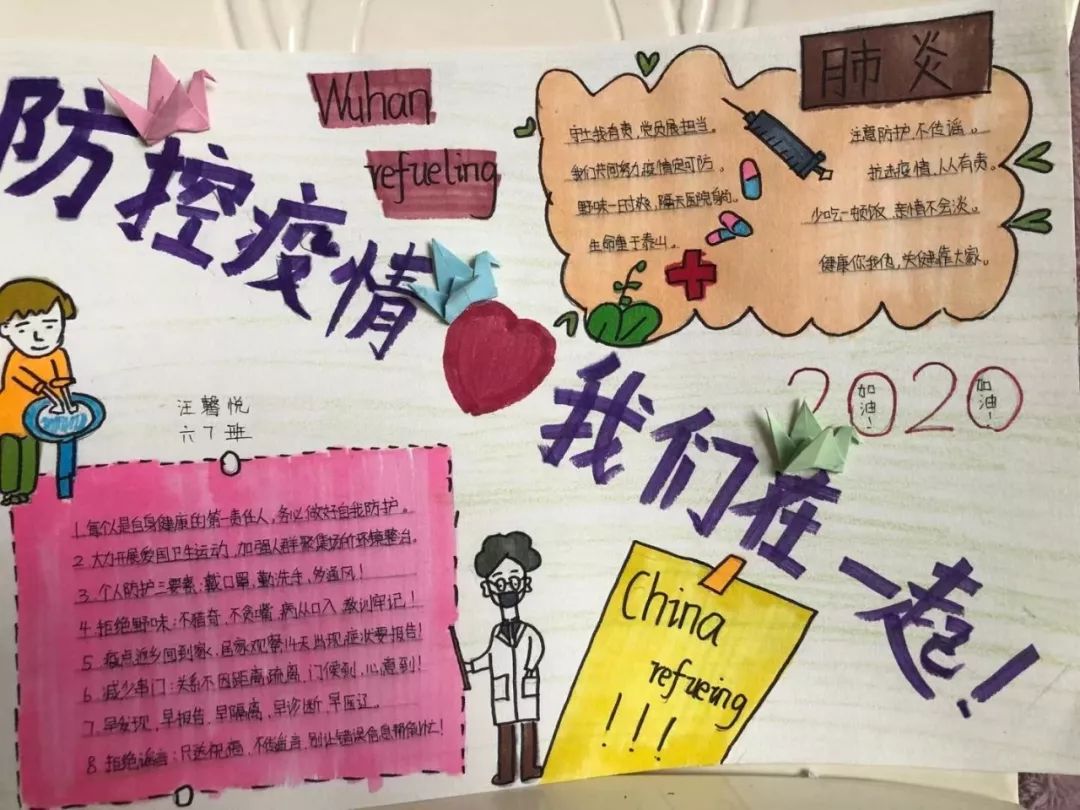 防控疫情
我们在一起!
Wuhan
refueling
肺炎
守土我有责,党员展担当。
我们共同努力,疫情定可防。
野味一时爽,隔天医院躺。
生命重于泰山。
注意防护,不传谣。
抗击疫情,人人有责。
少吃一顿饭,亲情不会淡。
健康你我他,关健靠大家。
2020
加油!
加油!
汪馨悦
六7班
1.每个人是自身健康的第一责任人,务必做好自我防护。
2.大力开展爱国卫生运动,加强人群聚集场所环境整治。
3.个人防护三要素:戴口罩,勤洗手,多通风!
4.拒绝野味:不猎奇,不贪嘴,病从口入,教训牢记!
5.疫点返乡回到家,居家观察14天出现症状要报告!
6.减少串门:关系不因距离疏离,门候到,心意到!
7.早发现,早报告,早隔离,早诊断,早医辽。
8.拒绝谣言:只送祝福,不传谣言,别让错误信息帮倒忙!
China
refueing
!!!